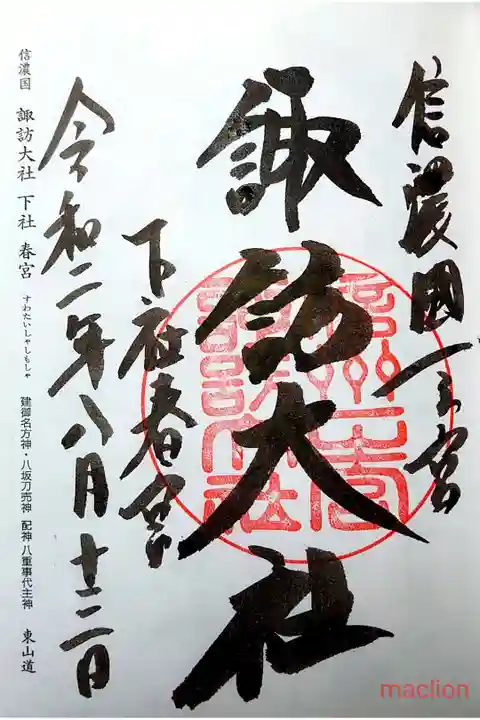 信濃國一之宮
諏訪大社
下社春宮
令和二年八月十二日
信濃国 諏訪大社 下社 春宮 すわたいしゃしもしゃ 建御名方神・八坂刀売神 配神 八重事代主神 東山道
maclion